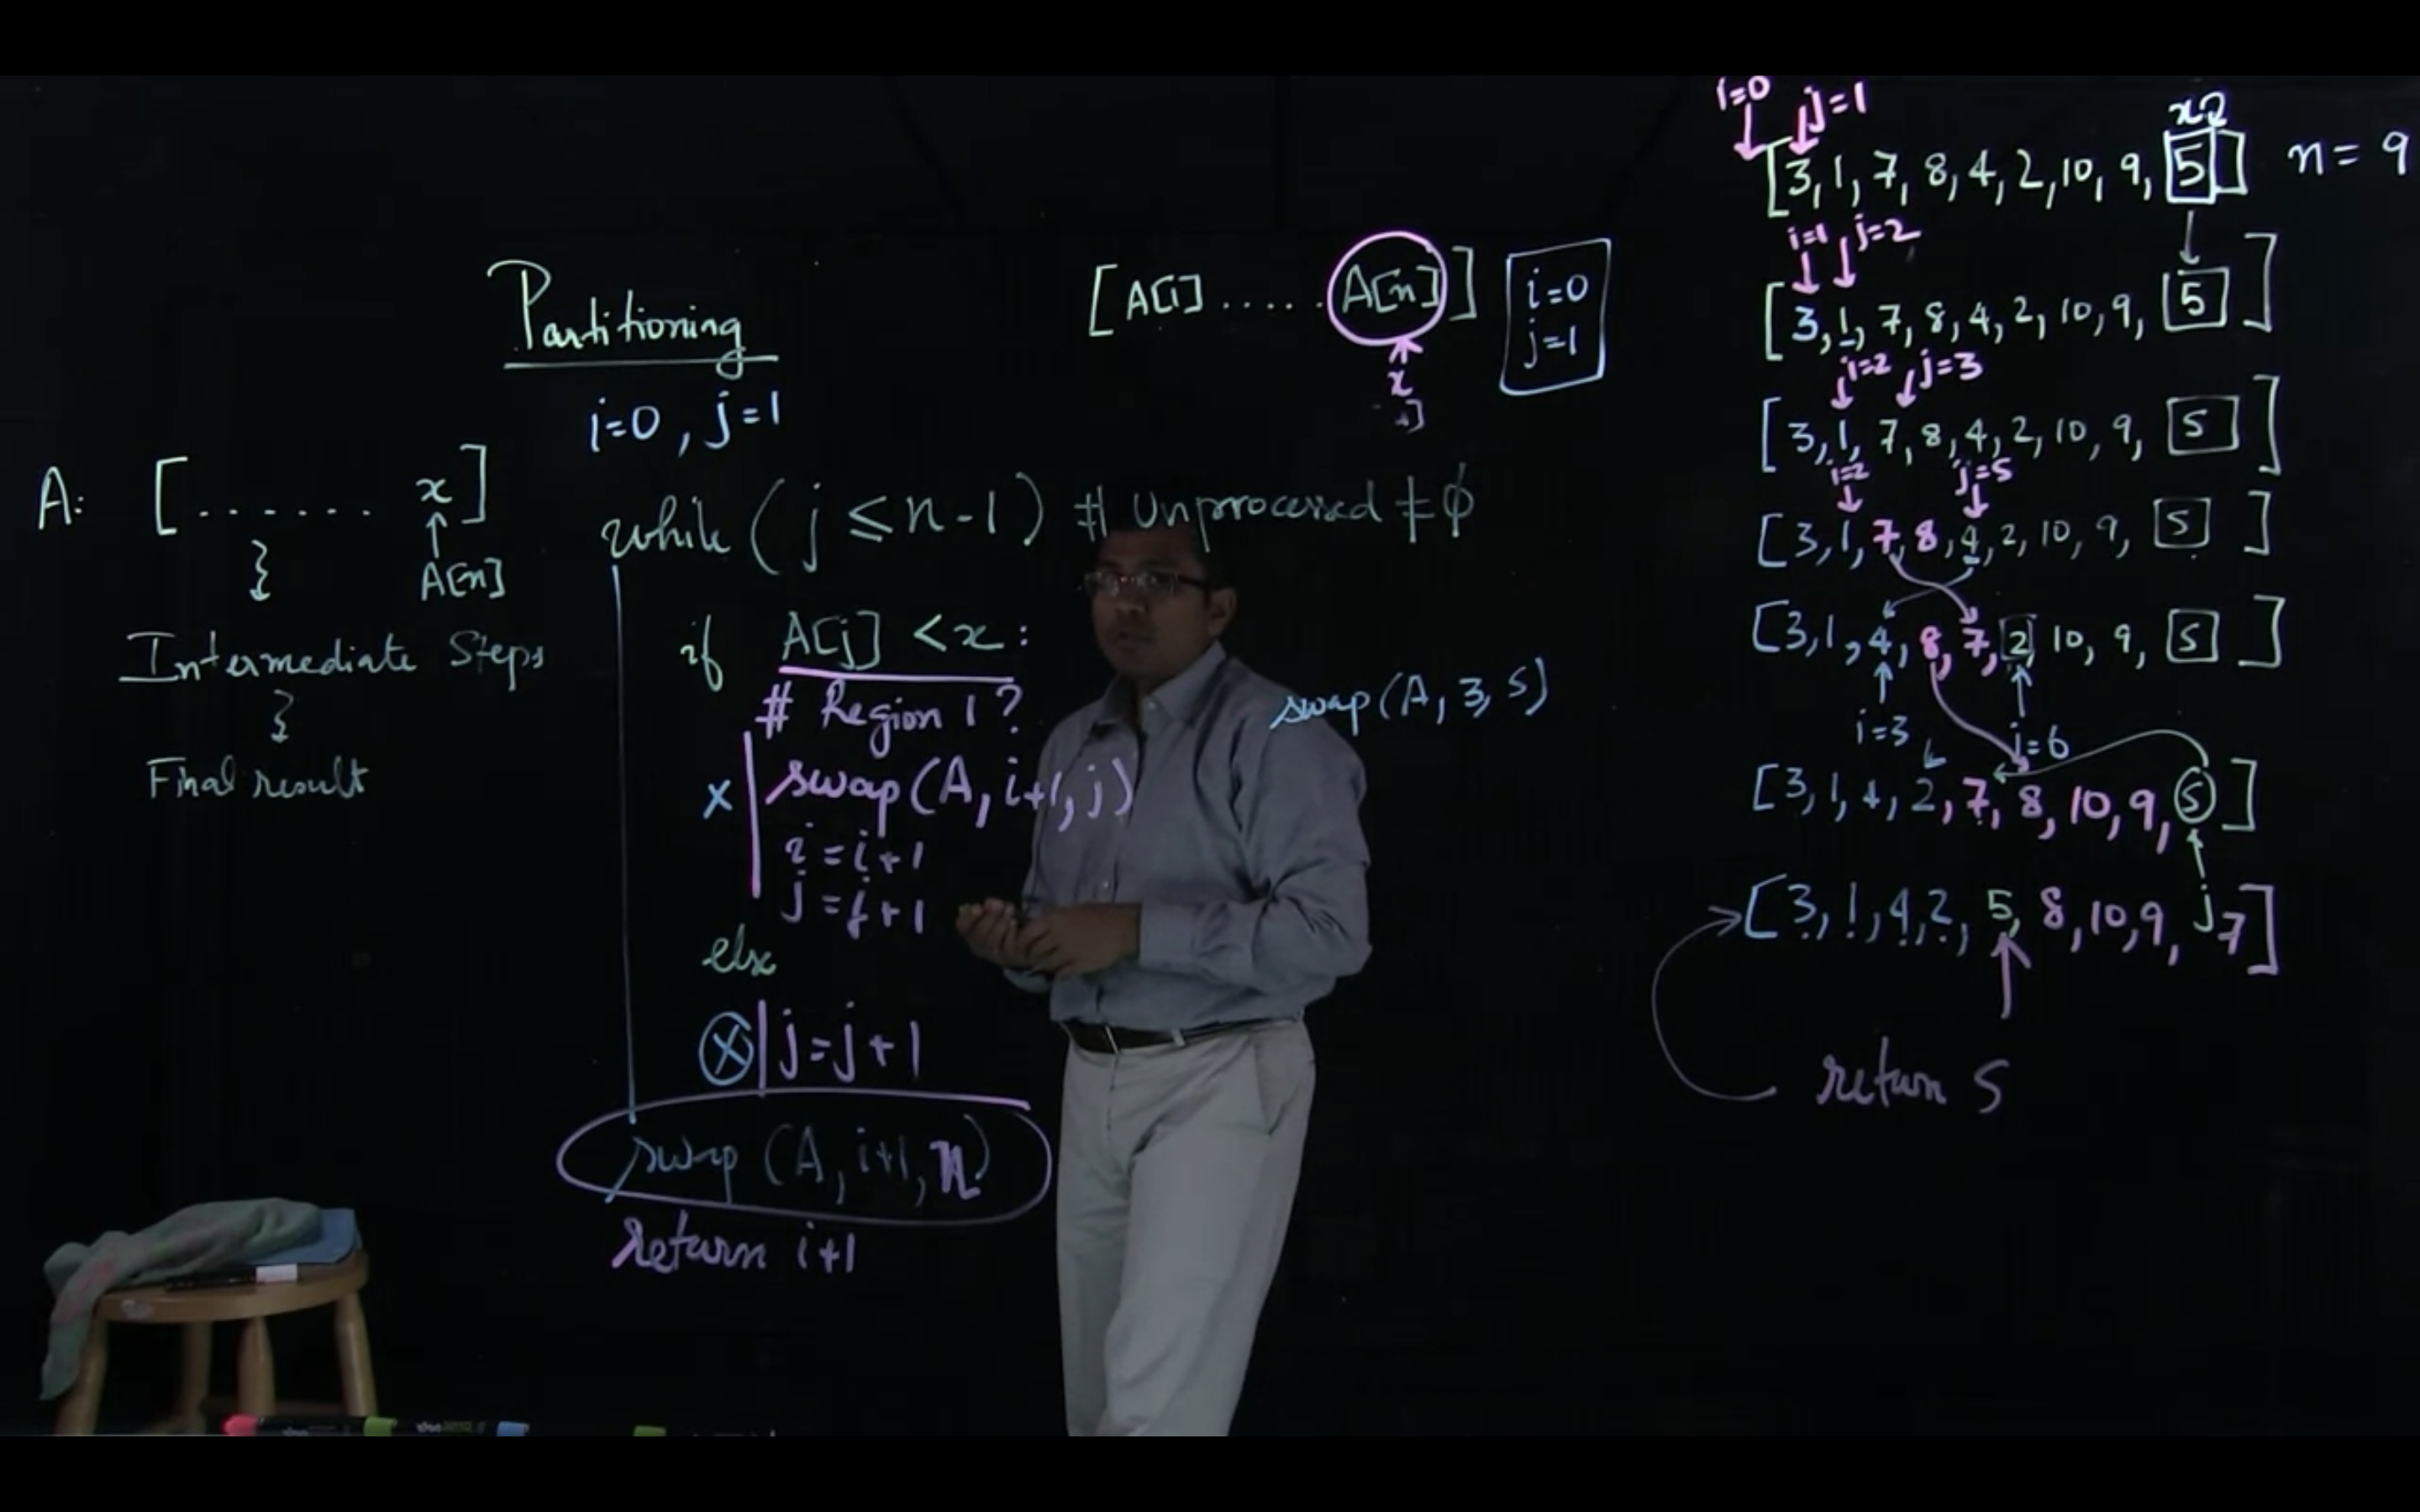 Partitioning
i=0, j=1
A: [ . . . . . . x ]
A[n]
Intermediate Steps
Final result
while (j ≤ n-1) # Unprocessed ≠ ϕ
if A[j] < x:
# Region 1?
x swap(A, i+1, j)
i = i+1
j = j+1
else
x j = j+1
swap (A, i+1, n)
return i+1
[A[1] ..... A[n]]
x
i=0
j=1
swap(A, 3, 5)
i=0 j=1
[3, 1, 7, 8, 4, 2, 10, 9, 5] n = 9
i=1 j=2
[3, 1, 7, 8, 4, 2, 10, 9, 5]
i=2 j=3
[3, 1, 7, 8, 4, 2, 10, 9, 5]
i=2 j=5
[3, 1, 7, 8, 4, 2, 10, 9, 5]
[3, 1, 4, 8, 7, 2, 10, 9, 5]
i=3 j=6
[3, 1, 4, 2, 7, 8, 10, 9, 5]
j
[3, 1, 4, 2, 5, 8, 10, 9, 7]
return 5